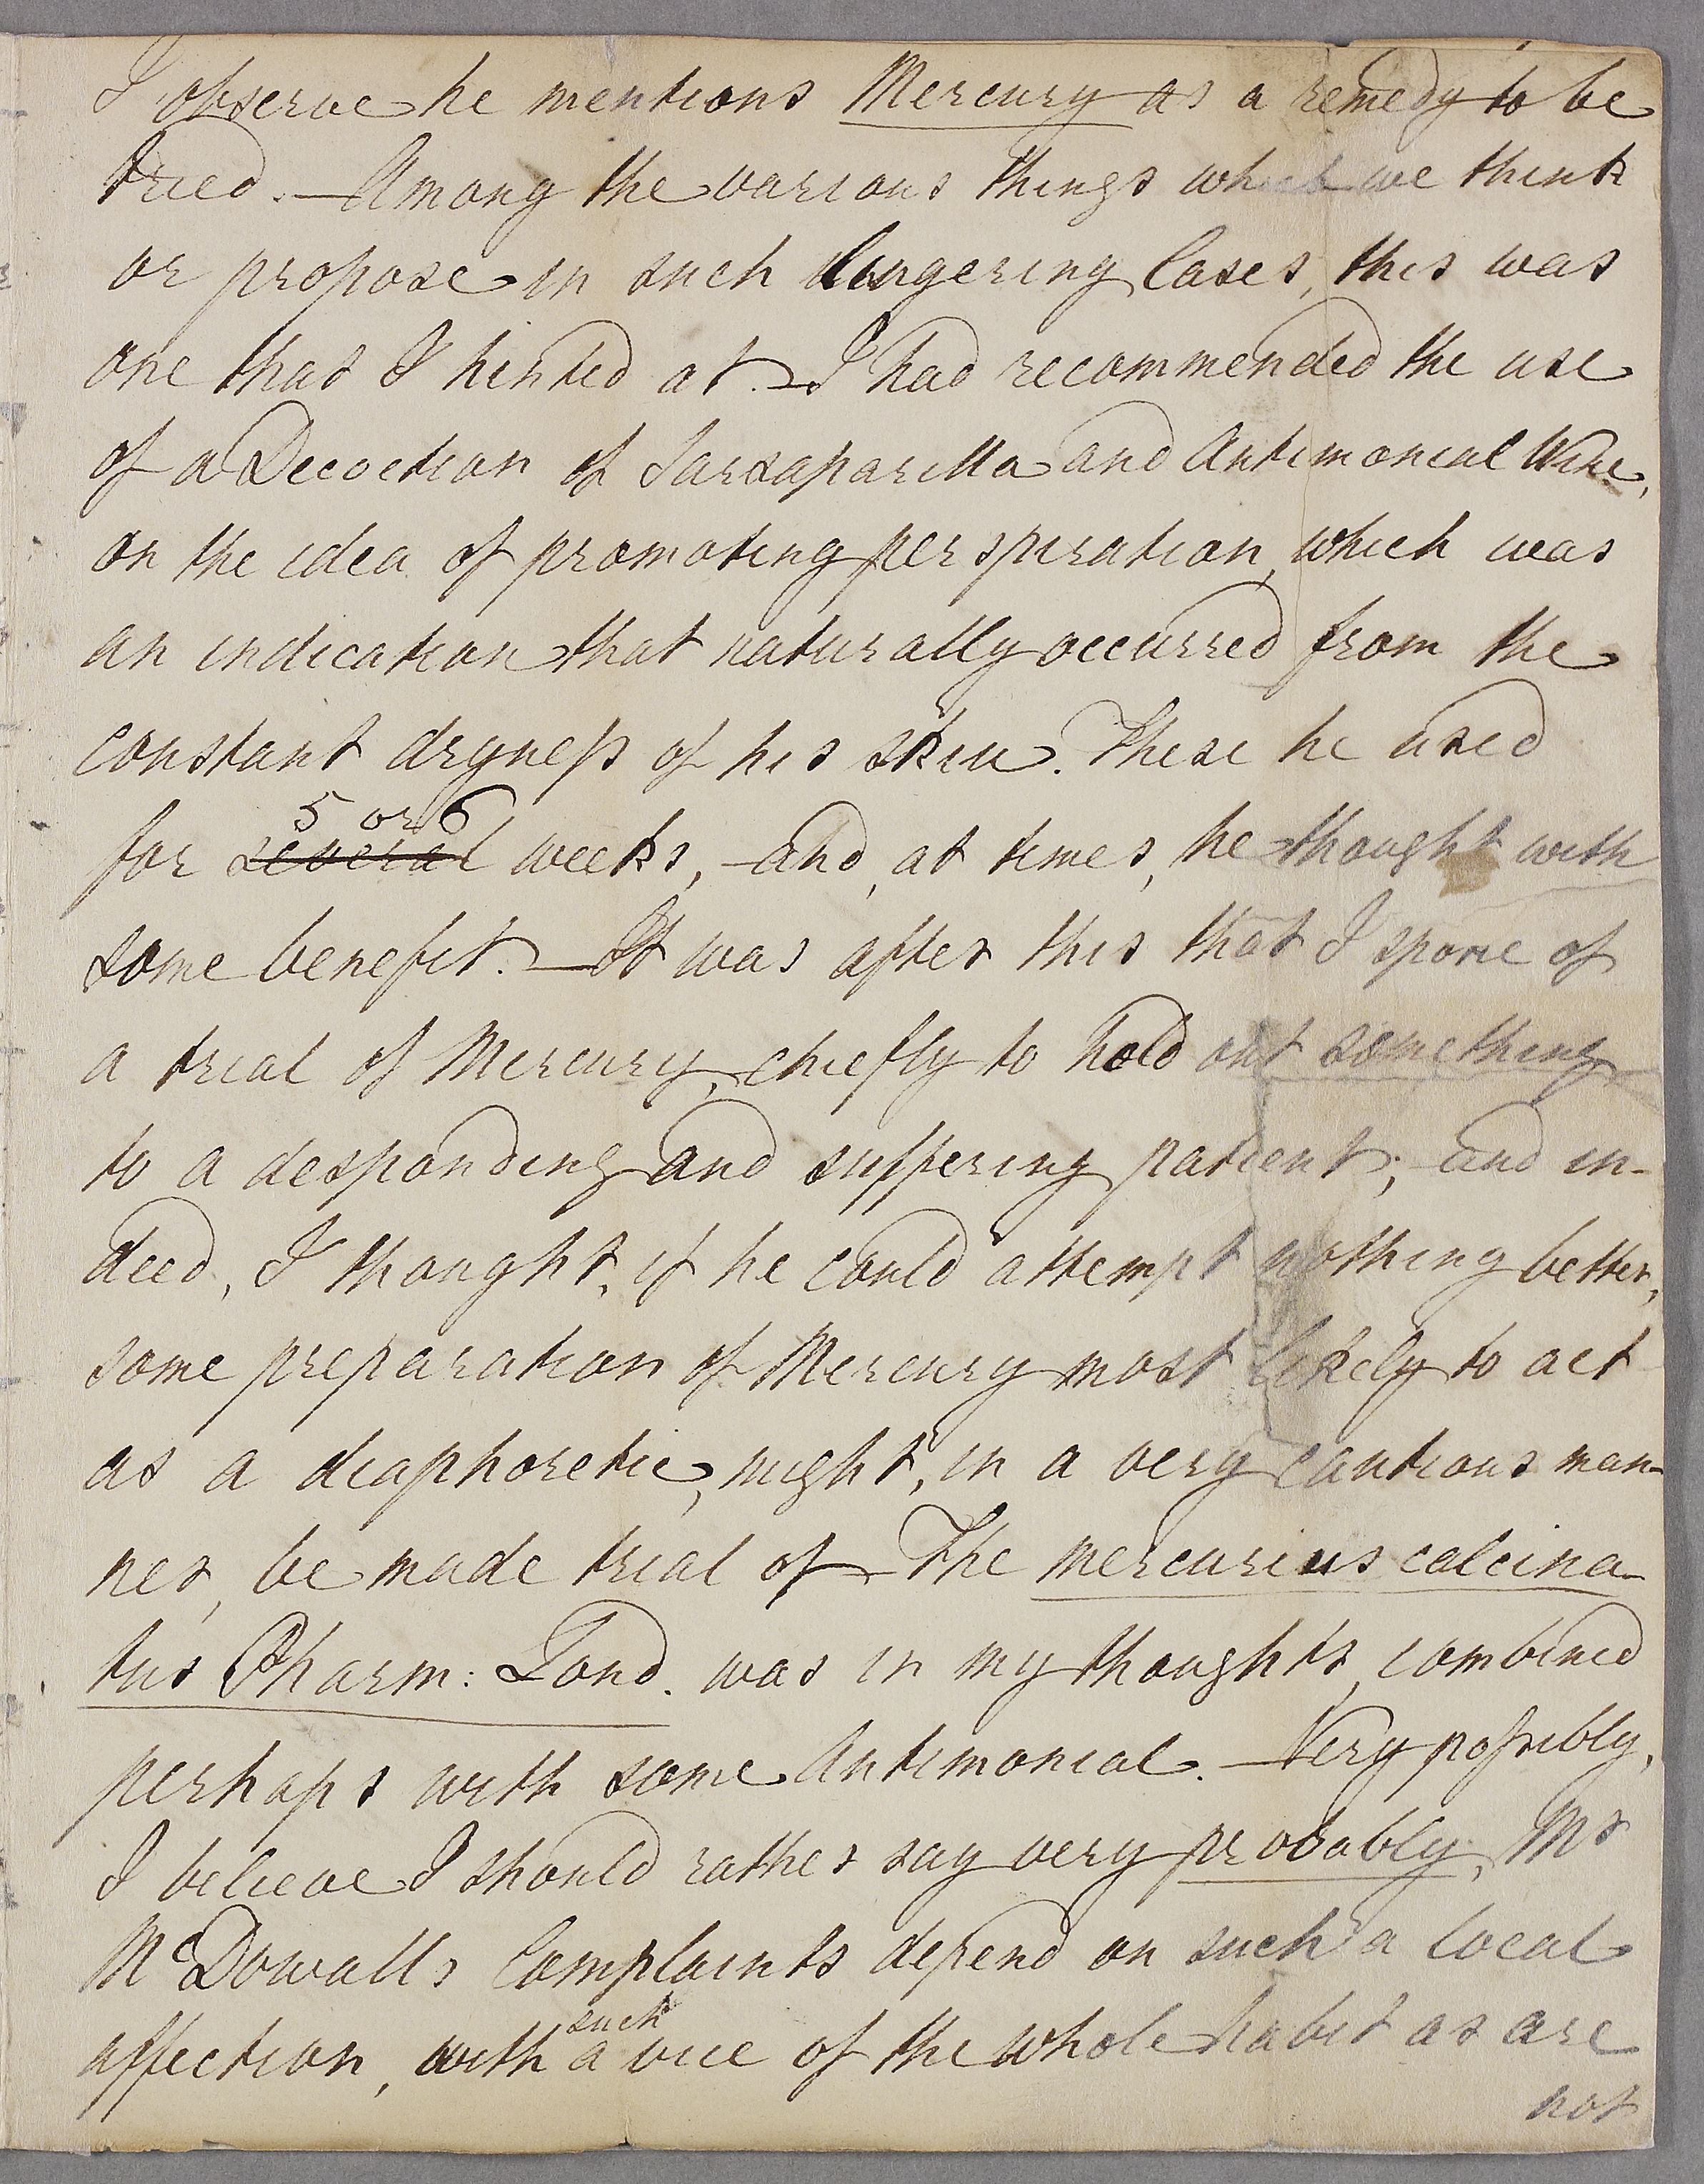 I observe he mentions Mercury as a remedy to be
tried. — Among the various things which we think
or propose in such lingering Cases, this was
one that I hinted at. — I had recommended the use
of a Decoction of Sarsaparilla and Antimonial Wine,
on the idea of promoting perspiration, which was
an indication that naturally occurred from the
constant dryneſs of his skin. These he used
5 or 6
for several weeks, — and, at times, he thought with
some benefit. — It was after this that I spoke of
a trial of Mercury, chiefly to hold out something
to a desponding and suffering patient; and in-
deed, I thought, if he could attempt nothing better,
some preparation of Mercury most likely to act
as a diaphoretic, might, in a very cautious man-
ner, be made trial of — The mercurius calcina-
tus Pharm: Lond. was in my thoughts, combined
perhaps with some Antimonial. — Very poſsibly,
I believe I should rather say very probably, Mr
McDowall's Complaints depend on such a local
such
affection, with a vice of the whole habit as are
not